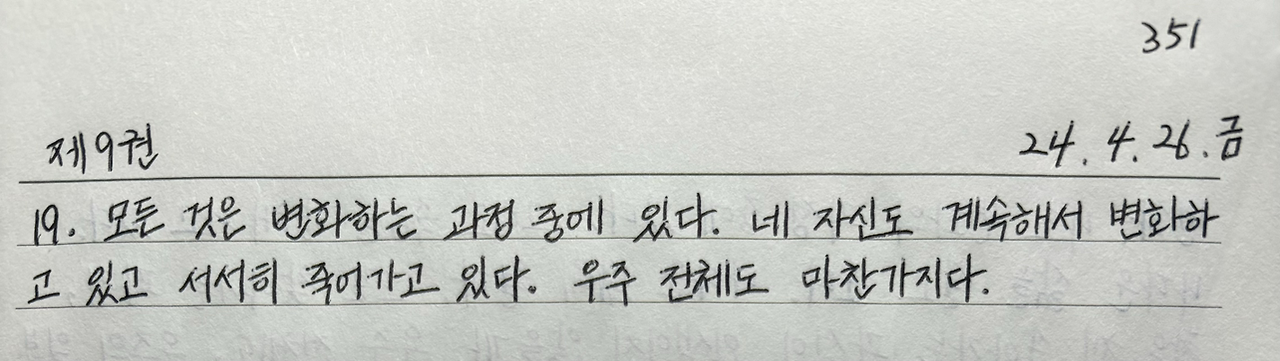 351
제9권 24.4.26.금
19. 모든 것은 변화하는 과정 중에 있다. 네 자신도 계속해서 변화하
고 있고 서서히 죽어가고 있다. 우주 전체도 마찬가지다.